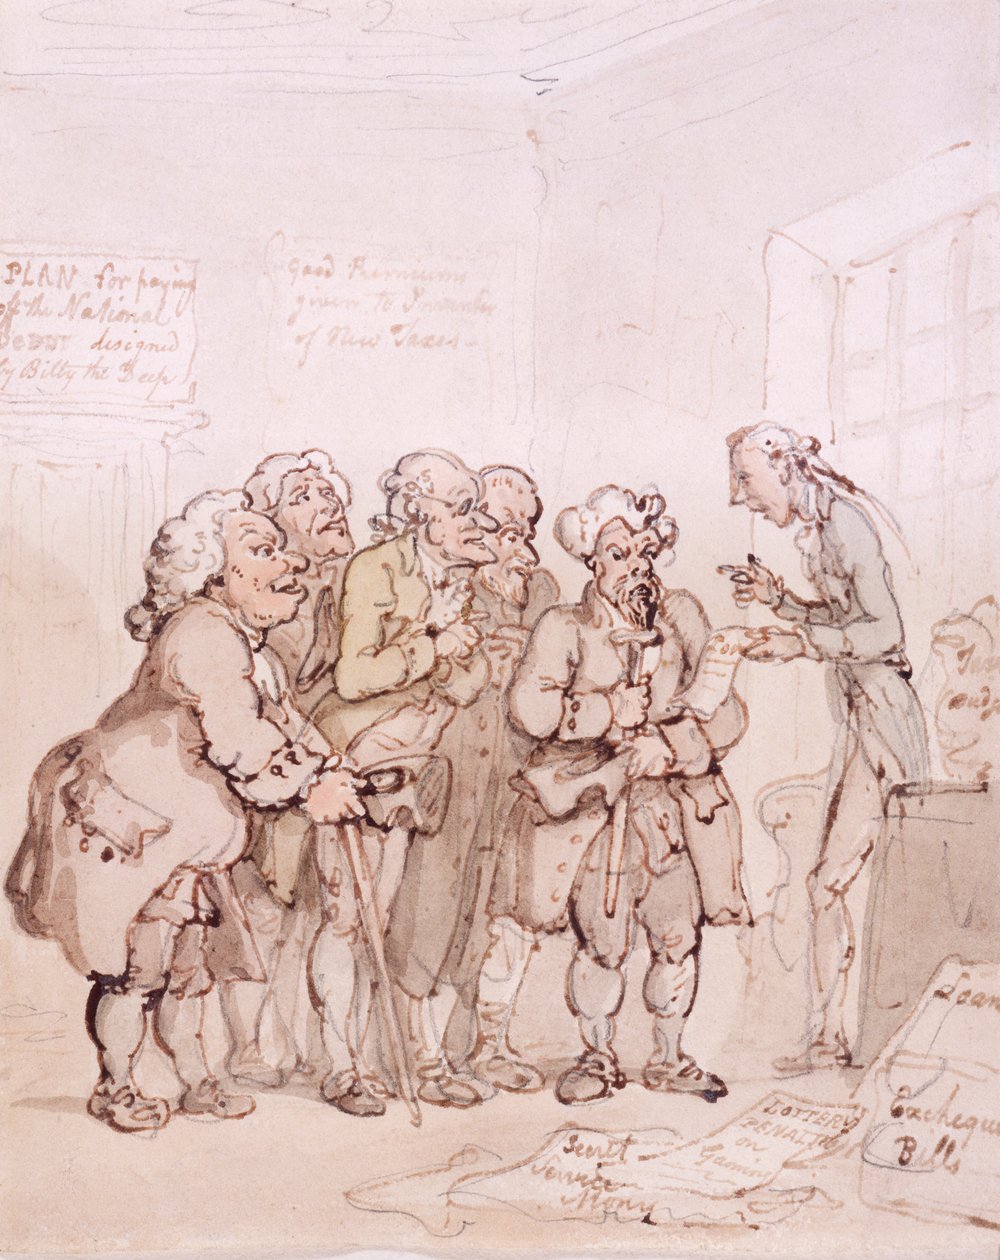 PLAN for paying
off the National
Debt designed
by Billy the Deep
Good Premiums
given to Inventors
of New Taxes
Loan
Exchequer
Bills
LOTTERY
PENALTY
on
Gaming
Secret
Service
Money